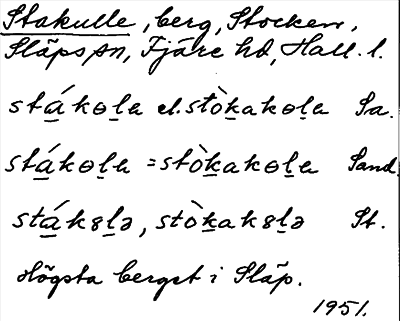 Stakulle, berg, Stocken,
Släps sn, Fjäre hd, Hall. l.
stákola el. stòkakola Sa.
stákola = stòkakola Sand.
ståk8lə, stòkak8lə St.
Högsta berget i Släp.
1951.